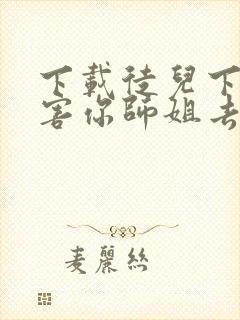 下載徒兒下
害你師姐去
麦麗絲